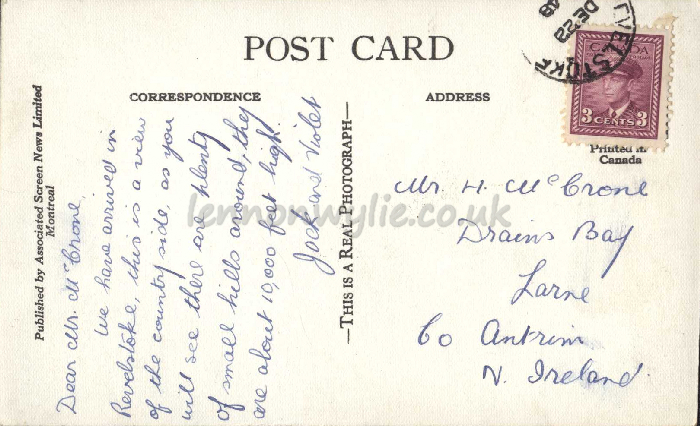 POST CARD
CORRESPONDENCE
ADDRESS
Published by Associated Screen News Limited
Montreal
Dear Mr. McCrone,
we have arrived in
Revelstoke, this is a view
of the country side, as you
will see there are plenty
of small hills around, they
are about 10,000 feet high.
Jack and Violet
—THIS IS A REAL PHOTOGRAPH—
REVELSTOKE
DE 22
48
CANADA
3 CENTS 3
Printed in
Canada
Mr. H. McCrone
Drains Bay
Larne
Co Antrim
N. Ireland.
lennonwylie.co.uk